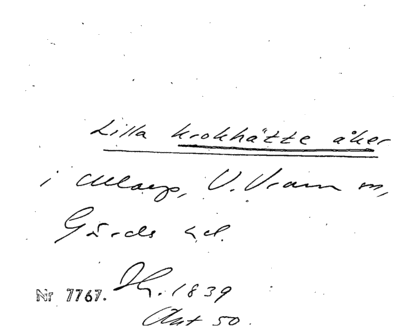 Lilla krokhätte åker
i Maarp, V. Vram m,
Gärds hd.
Nr 7767. 1839
Akt 50.